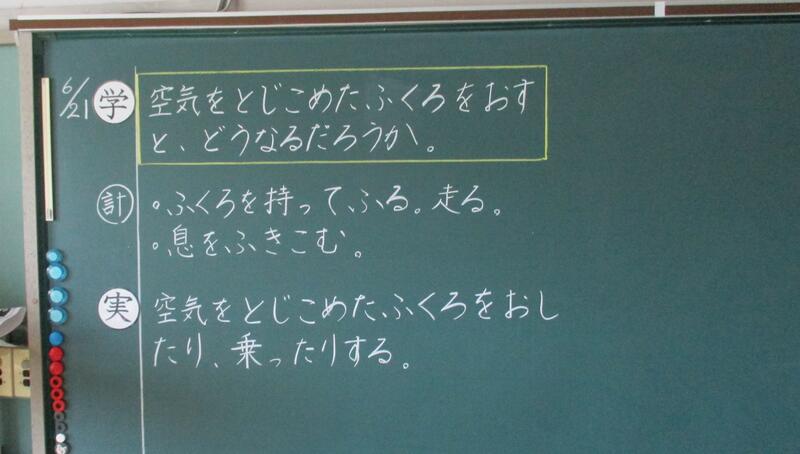 6/21 学 空気をとじこめたふくろをおす
と、どうなるだろうか。
計 ・ふくろを持ってふる。走る。
・息をふきこむ。
実 空気をとじこめたふくろをおし
たり、乗ったりする。